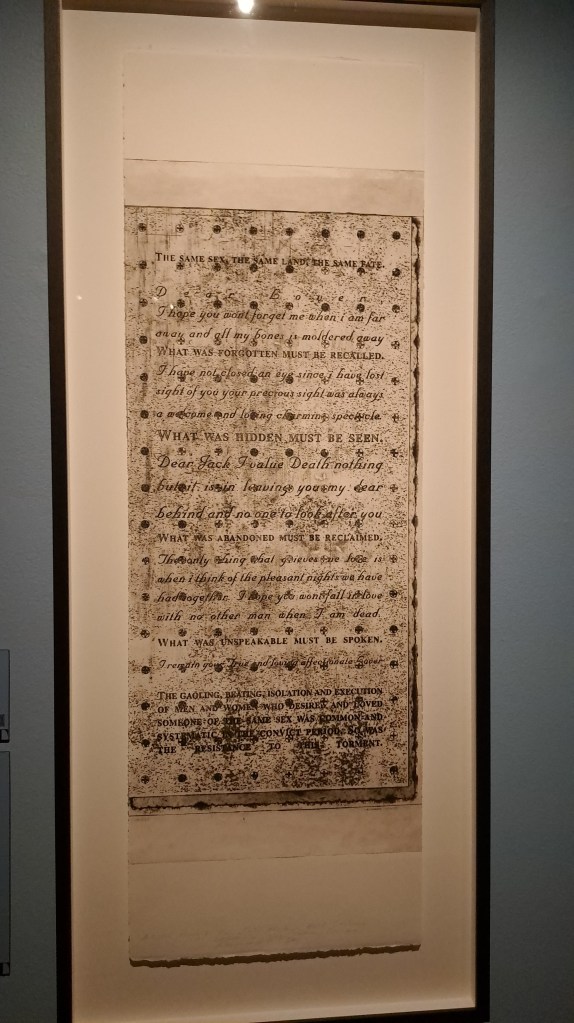 THE SAME SEX, THE SAME LAND, THE SAME FATE.
Dear Lover
I hope you wont forget me when i am far
away and all my bones is moldered away
WHAT WAS FORGOTTEN MUST BE RECALLED.
I have not closed an eye since i have lost
sight of you your precious sight was always
a welcome and loving charming spectacle.
WHAT WAS HIDDEN MUST BE SEEN.
Dear Jack I value Death nothing
but it is in leaving you my dear
behind and no one to look after you
WHAT WAS ABANDONED MUST BE RECLAIMED.
The only thing that grieves me love is
when i think of the pleasant nights we have
had together. I hope you wont fall in love
with no other man when I am dead.
WHAT WAS UNSPEAKABLE MUST BE SPOKEN.
I remain your True and loving affectionate Lover
THE GAOLING, BEATING, ISOLATION AND EXECUTION
OF MEN AND WOMEN WHO DESIRED AND LOVED
SOMEONE OF THE SAME SEX WAS COMMON AND
SYSTEMATIC IN THE CONVICT PERIOD. SO WAS
THE RESISTANCE TO THIS TORMENT.